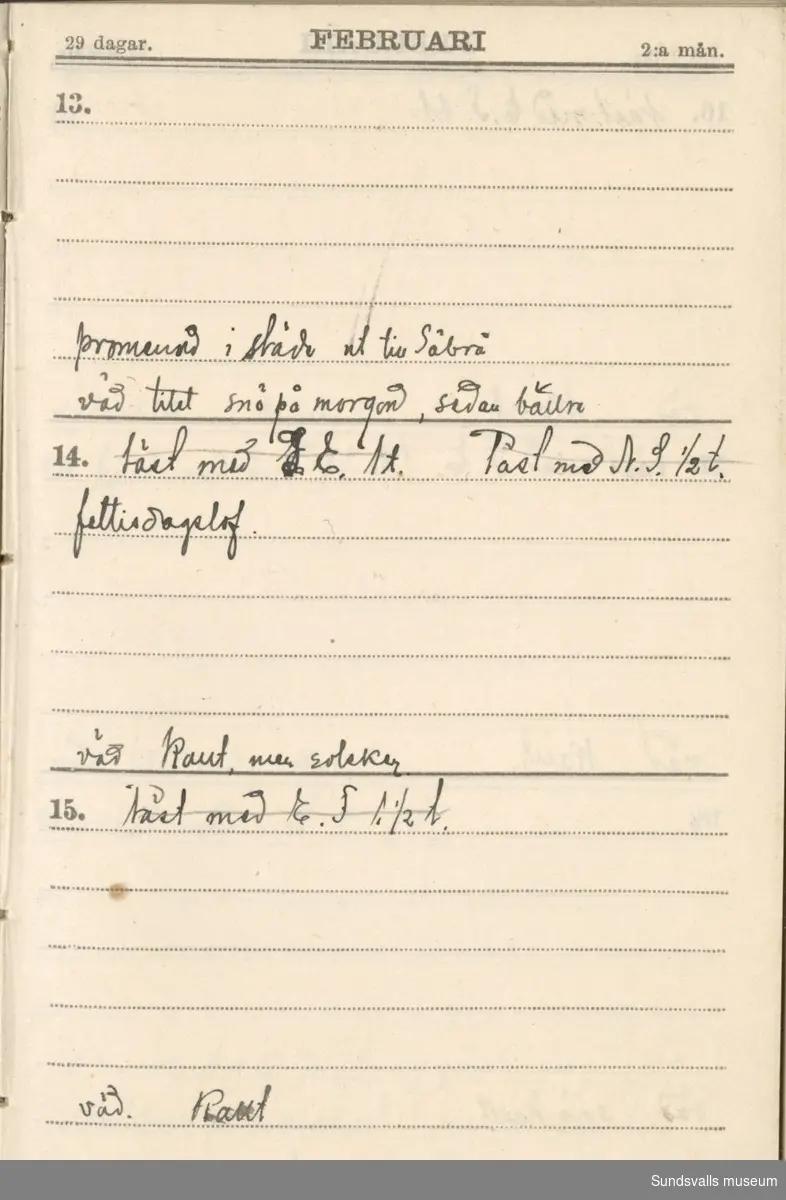 29 dagar. FEBRUARI 2:a mån.
13.
promenad i släde ut till Säbrå
väd litet snö på morgond, sedan bättre
14. läst med E. 1 t. Läst med N. S. 1/2 t.
fettisdagslof.
väd Kallt, men solsken
15. läst med E. F 1 1/2 t.
väd. Kallt
Sundsvalls museum